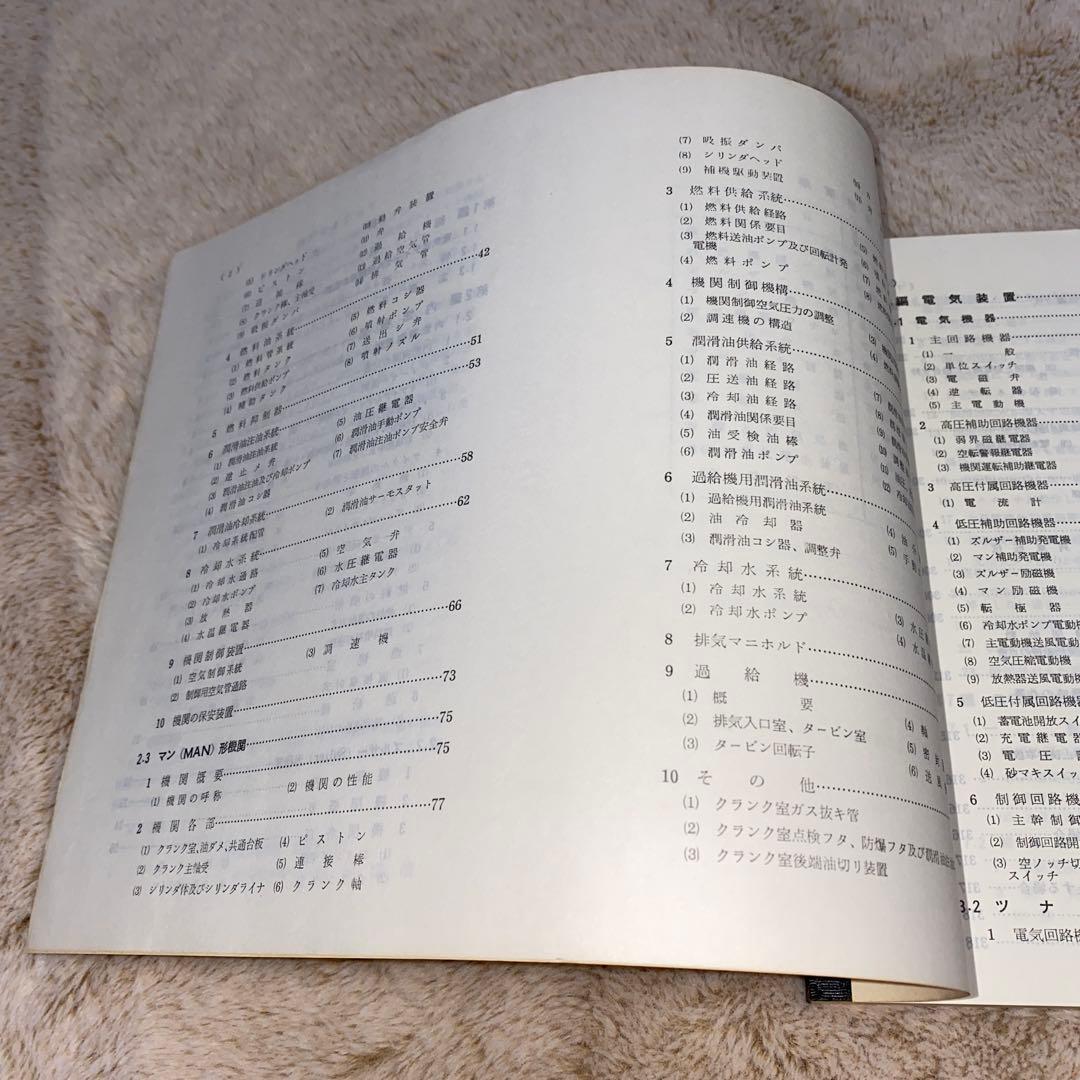 (2)
(5) シリンダヘッド
(6) ピストン
(7) 連接棒
(8) クランク棒、主軸受
(9) 吸振ダンパ
4 燃料油系統
(1) 燃料管系統
(2) 燃料タンク
(3) 燃料供給ポンプ
(4) 補助タンク
5 燃料抑制器
6 潤滑油注油系統
(1) 潤滑油注油系統
(2) 逆止メ弁
(3) 潤滑油注油及び冷却ポンプ
(4) 潤滑油コシ器
7 潤滑油冷却系統
(1) 冷却系統配管
8 冷却水系統
(1) 冷却水通路
(2) 冷却水ポンプ
(3) 放熱器
(4) 水温継電器
9 機関制御装置
(1) 空気制御系統
(2) 制御用空気管通路
10 機関の保安装置
2-3 マン(MAN)形機関
1 機関概要
(1) 機関の呼称
2 機関各部
(1) クランク室、油ダメ、共通台板
(2) クランク主軸受
(3) シリンダ体及びシリンダライナ
動弁装置
弁
過給機
過給空気管
排気管
42
(5) 燃料コシ器
(6) 噴射ポンプ
(7) 送出シ弁
(8) 噴射ノズル
51
53
(5) 油圧継電器
(6) 潤滑油手動ポンプ
(7) 潤滑油注油ポンプ安全弁
58
(2) 潤滑油サーモスタット
62
(5) 空気弁
(6) 水圧継電器
(7) 冷却水主タンク
66
(3) 調速機
73
75
75
(2) 機関の性能
77
(4) ピストン
(5) 連接棒
(6) クランク軸
(7) 吸振ダンパ
(8) シリンダヘッド
(9) 補機駆動装置
3 燃料供給系統
(1) 燃料供給経路
(2) 燃料関係要目
(3) 燃料送油ポンプ及び回転計発
電機
(4) 燃料ポンプ
4 機関制御機構
(1) 機関制御空気圧力の調整
(2) 調速機の構造
5 潤滑油供給系統
(1) 潤滑油経路
(2) 圧送油経路
(3) 冷却油経路
(4) 潤滑油関係要目
(5) 油受検油棒
(6) 潤滑油ポンプ
6 過給機用潤滑油系統
(1) 過給機用潤滑油系統
(2) 油冷却器
(3) 潤滑油コシ器、調整弁
7 冷却水系統
(1) 冷却水系統
(2) 冷却水ポンプ
8 排気マニホルド
9 過給機
(1) 概要
(2) 排気入口室、タービン室
(3) タービン回転子
10 その他
(1) クランク室ガス抜キ管
(2) クランク室点検フタ、防爆フタ及び
(3) クランク室後端油切リ装置
(3) 水圧
(4) 水温
(4) 軸
(5) 密
(6) 送
編電気装置
1 電気機器
1 主回路機器
(1) 一般
(2) 単位スイッチ
(3) 電磁弁
(4) 逆転器
(5) 主電動機
2 高圧補助回路機器
(1) 弱界磁継電器
(2) 空転警報継電器
(3) 機関運転補助継電器
3 高圧付属回路機器
(1) 電流計
4 低圧補助回路機器
(1) ズルザー補助発電機
(2) マン補助発電機
(3) ズルザー励磁機
(4) マン励磁機
(5) 転極器
(6) 冷却水ポンプ電動
(7) 主電動機送風電動
(8) 空気圧縮電動機
(9) 放熱器送風電動
5 低圧付属回路機器
(1) 蓄電池開放ス
(2) 充電継電器
(3) 電圧
(4) 砂マキスイッ
6 制御回路機
(1) 主幹制御
(2) 制御回路開
(3) 空ノッチ切
スイッチ
3-2 ツナ
1 電気回路